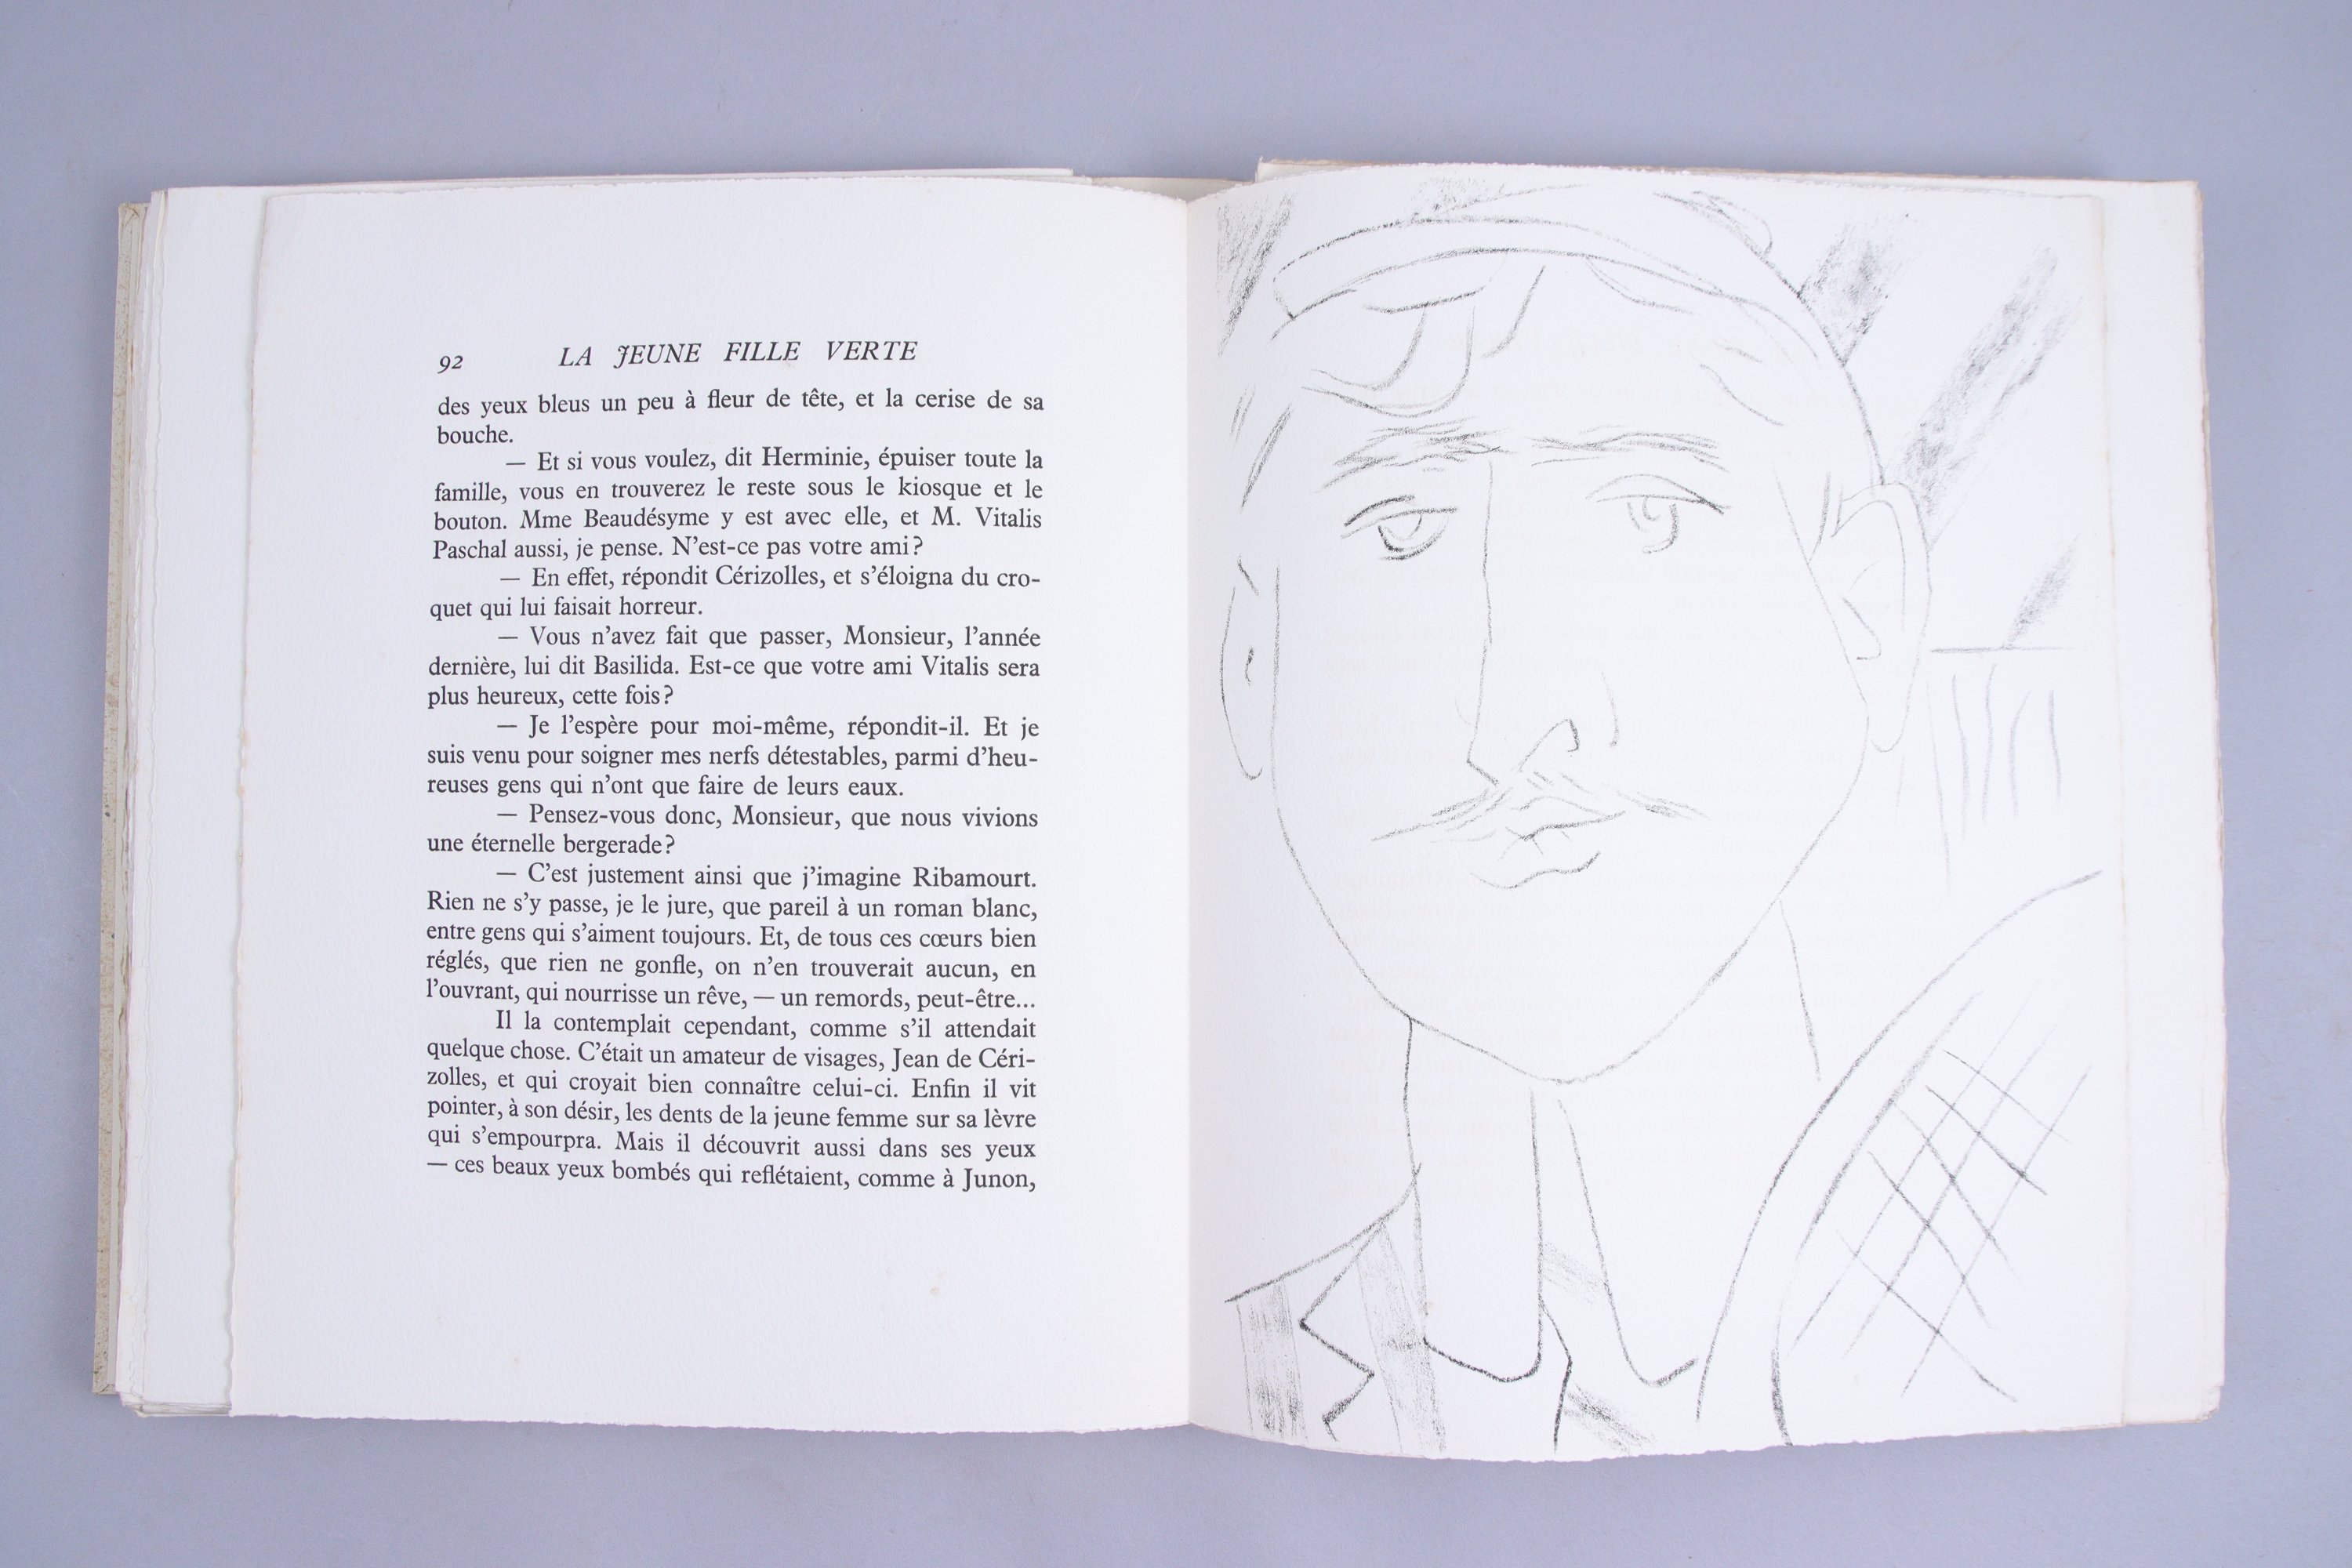 92 LA JEUNE FILLE VERTE
des yeux bleus un peu à fleur de tête, et la cerise de sa
bouche.
— Et si vous voulez, dit Herminie, épuiser toute la
famille, vous en trouverez le reste sous le kiosque et le
bouton. Mme Beaudésyme y est avec elle, et M. Vitalis
Paschal aussi, je pense. N’est-ce pas votre ami?
— En effet, répondit Cérizolles, et s’éloigna du cro-
quet qui lui faisait horreur.
— Vous n’avez fait que passer, Monsieur, l’année
dernière, lui dit Basilida. Est-ce que votre ami Vitalis sera
plus heureux, cette fois?
— Je l’espère pour moi-même, répondit-il. Et je
suis venu pour soigner mes nerfs détestables, parmi d’heu-
reuses gens qui n’ont que faire de leurs eaux.
— Pensez-vous donc, Monsieur, que nous vivions
une éternelle bergerade?
— C’est justement ainsi que j’imagine Ribamourt.
Rien ne s’y passe, je le jure, que pareil à un roman blanc,
entre gens qui s’aiment toujours. Et, de tous ces cœurs bien
réglés, que rien ne gonfle, on n’en trouverait aucun, en
l’ouvrant, qui nourrisse un rêve, — un remords, peut-être...
Il la contemplait cependant, comme s’il attendait
quelque chose. C’était un amateur de visages, Jean de Céri-
zolles, et qui croyait bien connaître celui-ci. Enfin il vit
pointer, à son désir, les dents de la jeune femme sur sa lèvre
qui s’empourpra. Mais il découvrit aussi dans ses yeux
— ces beaux yeux bombés qui reflétaient, comme à Junon,